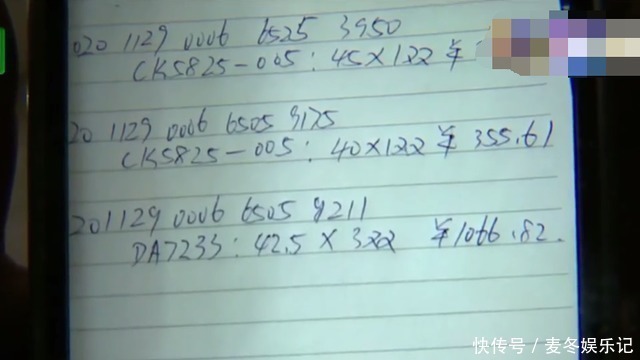 020 1129 0006 6525 3950
CK5825-005: 45X122 ¥
20 1129 0006 6505 9175
CK5825-005: 40X122 ¥ 355.61
201129 0006 6505 9211
DA7233: 42.5 X 322 ¥1066.82.
快传号/麦冬娱乐记